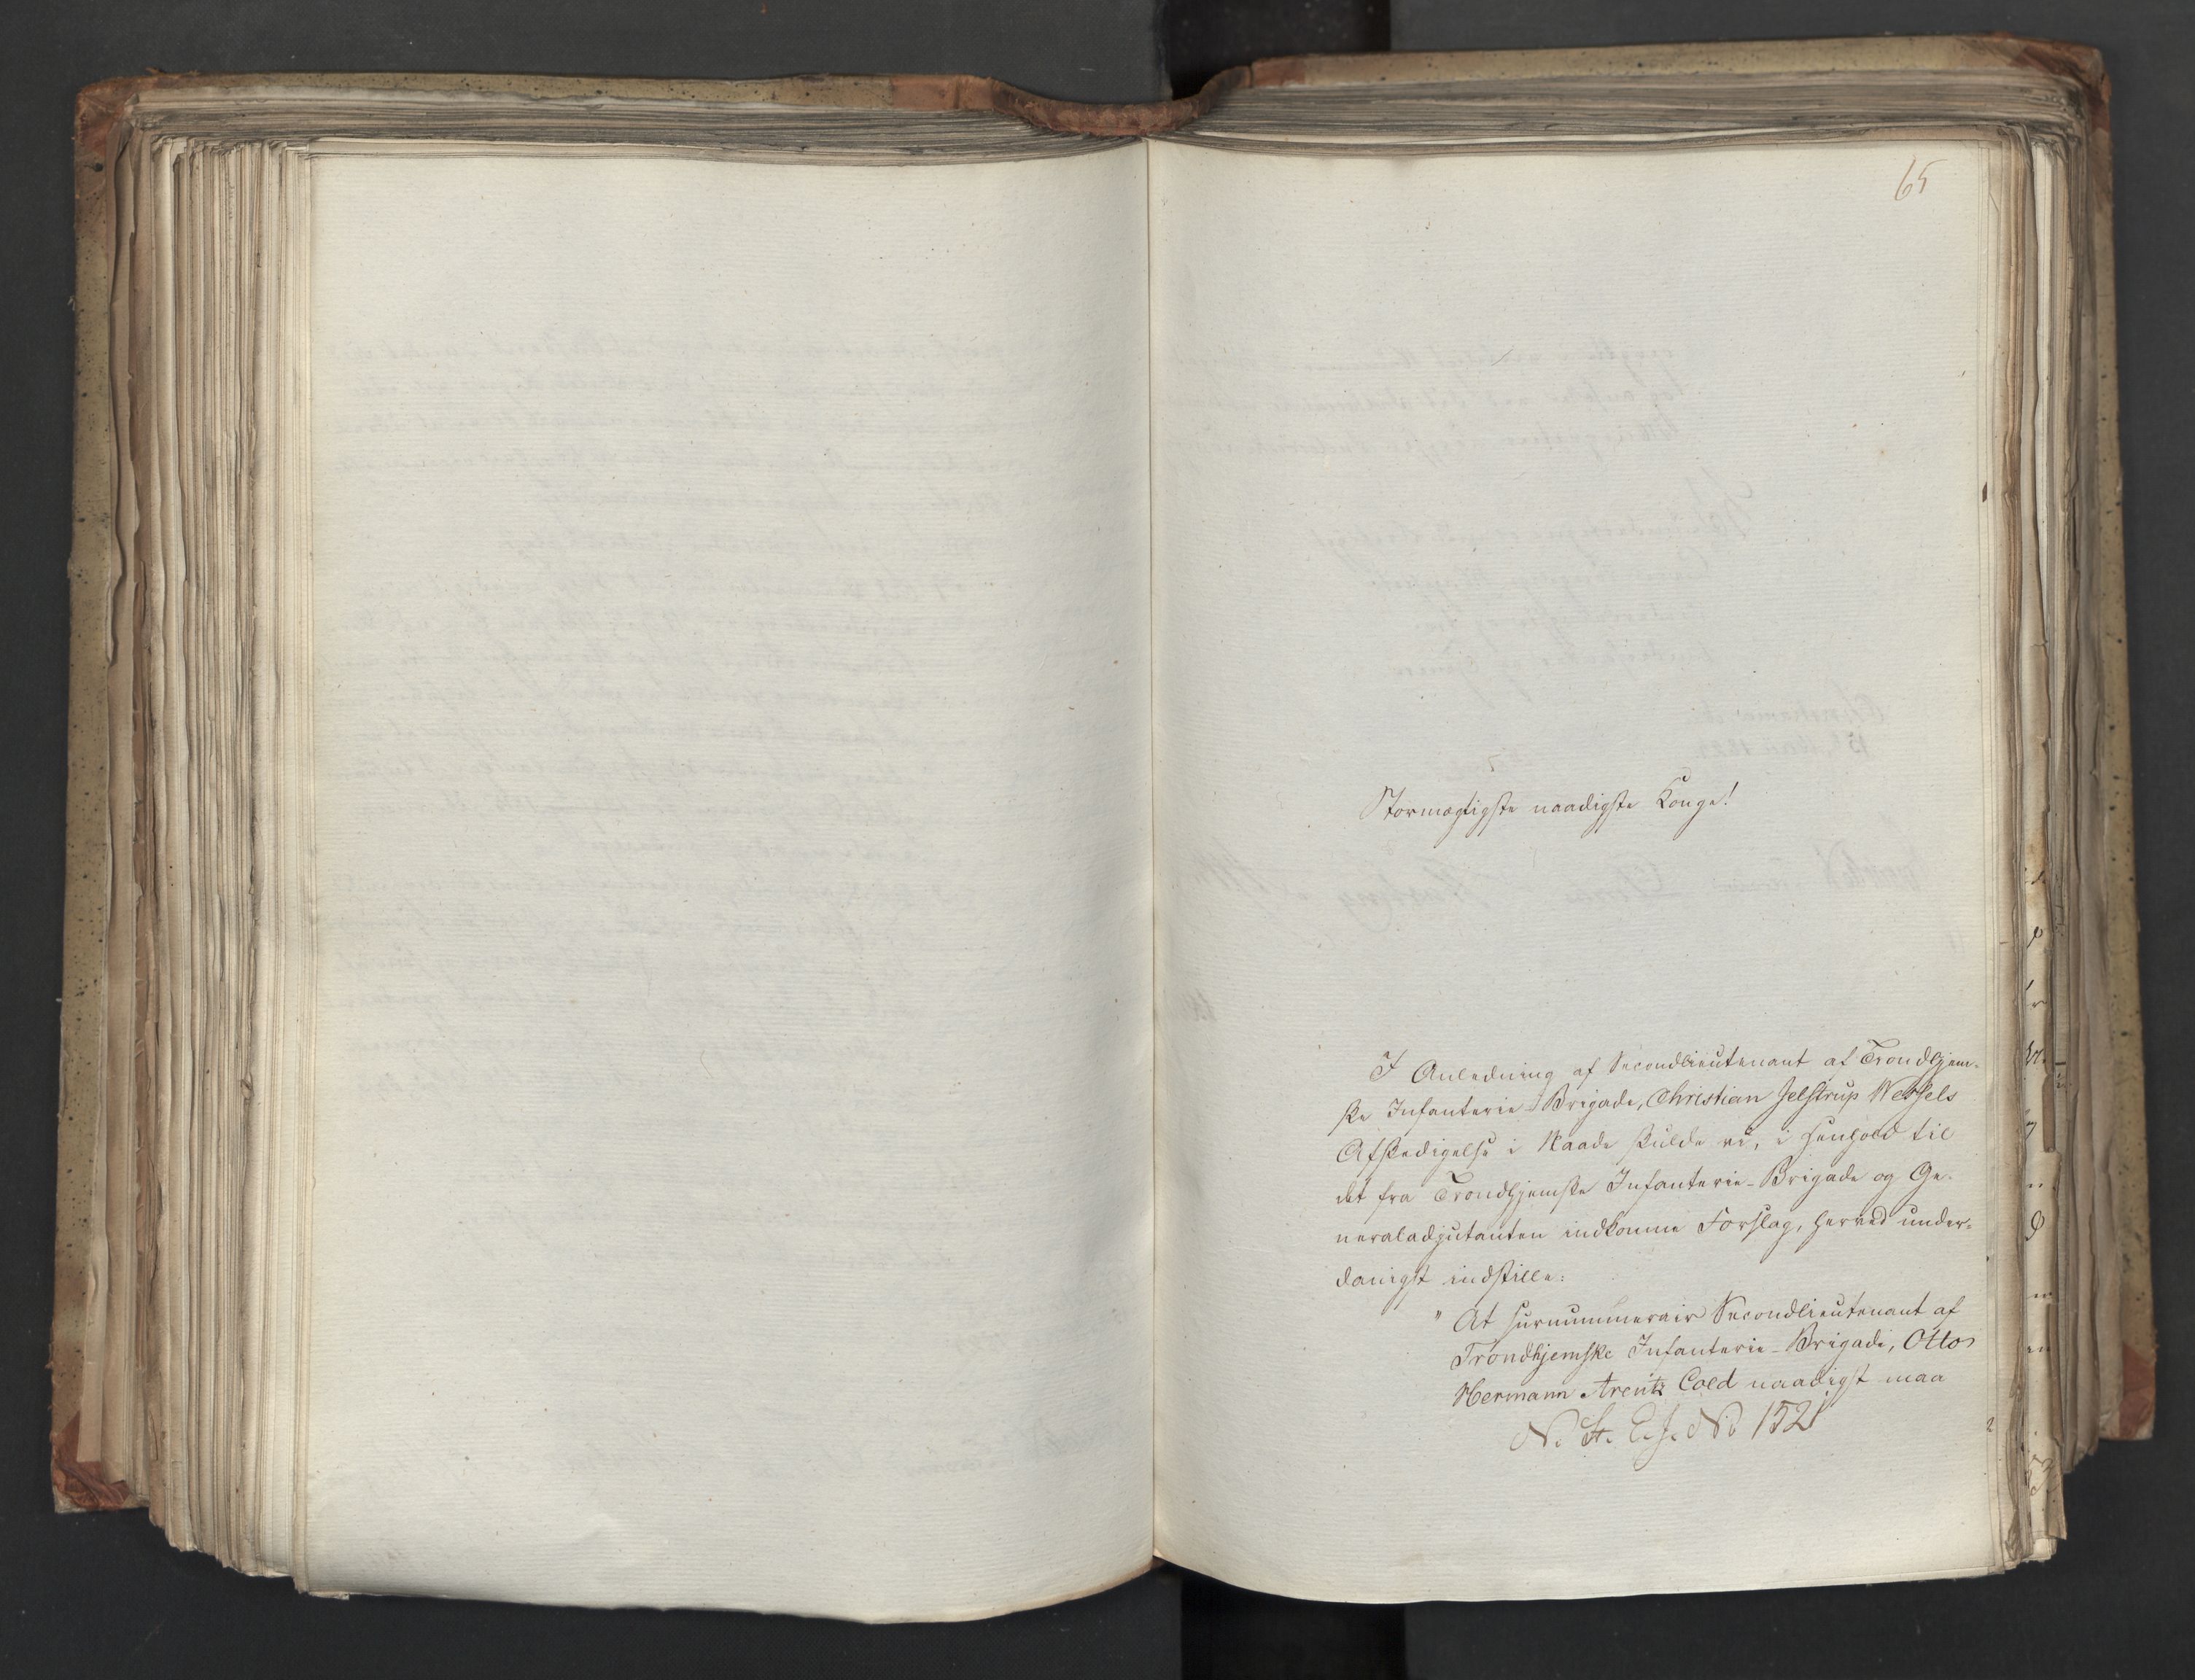 65
Stormægtigste naadigste Konge!
I Anledning af Secondlieutenant af Trondhjem-
ske Infanterie-Brigade, Christian Jelstrup Wessels
Afskedigelse i Naade skulde vi, i Henhold til
det fra Trondhjemske Infanterie-Brigade og Ge-
neraladjutanten indkomne Forslag, herved under-
danigst indstille:
" At surnummerair Secondlieutenant af
Trondhjemske Infanterie-Brigade, Otto
Hermann Arentz Cold naadigst maa
N. St. E. J. No 1521